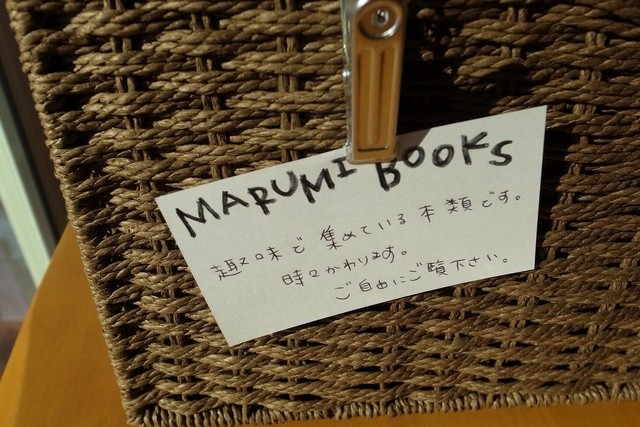 MARUMI BOOKS
趣味で集めている本類です。
時々かわります。
ご自由にご覧下さい。